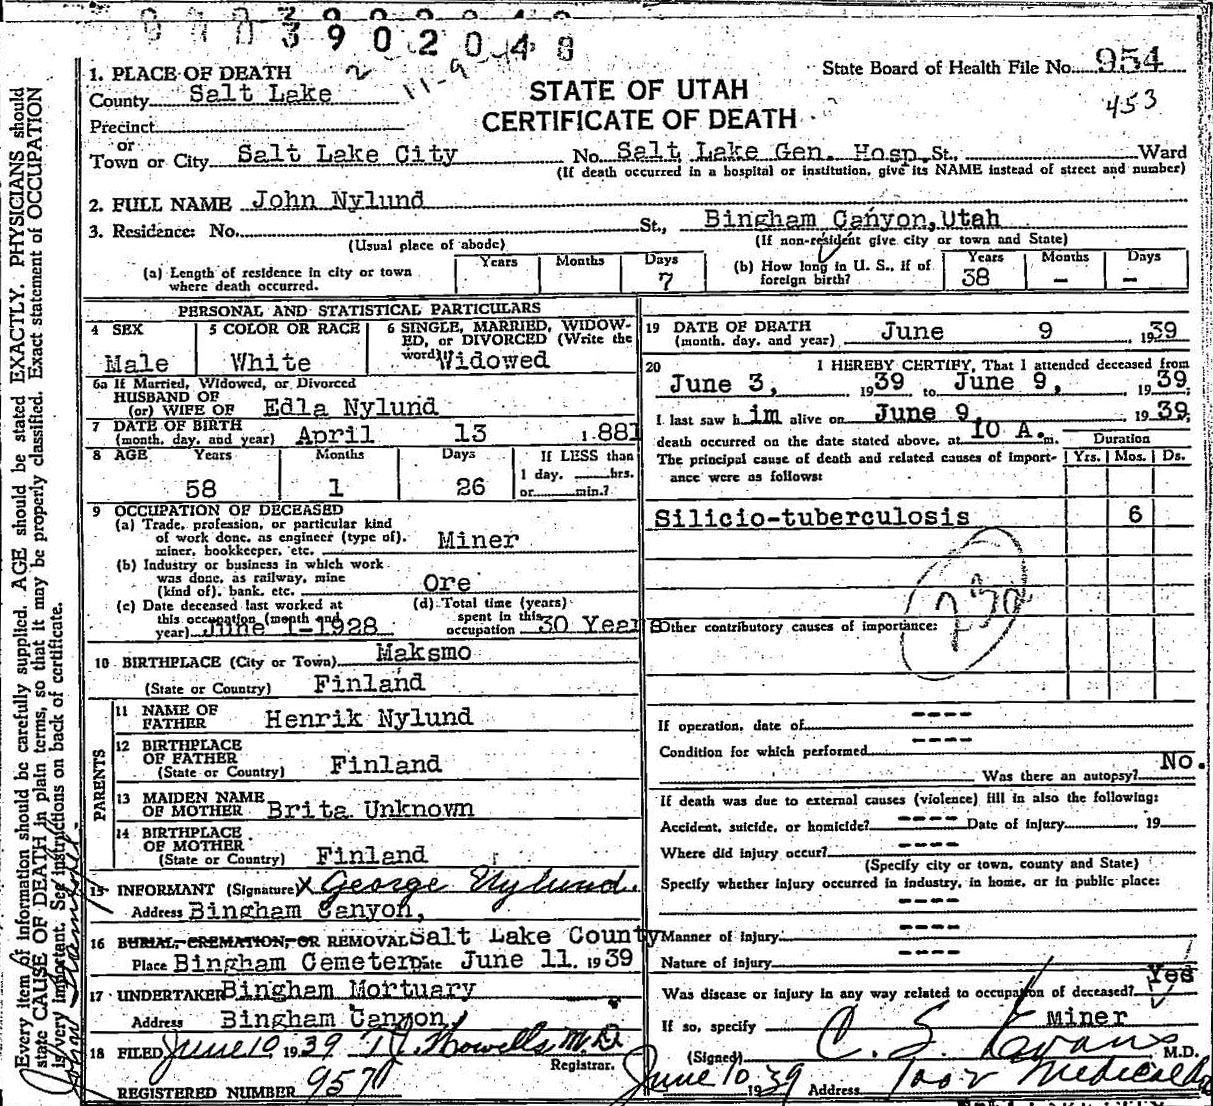 3902048
State Board of Health File No. 954
453
11-9-
STATE OF UTAH
CERTIFICATE OF DEATH
1. PLACE OF DEATH
County Salt Lake
Precinct
or
Town or City Salt Lake City No. Salt Lake Gen. Hosp. St., Ward
(If death occurred in a hospital or institution, give its NAME instead of street and number)
2. FULL NAME John Nylund
3. Residence: No. St., Bingham Canyon, Utah
(Usual place of abode) (If non-resident give city or town and State)
(a) Length of residence in city or town where death occurred. Years Months Days 7
(b) How long in U. S., if of foreign birth? Years 38 Months — Days —
PERSONAL AND STATISTICAL PARTICULARS
4 SEX Male
5 COLOR OR RACE White
6 SINGLE, MARRIED, WIDOWED, OR DIVORCED (Write the word) Widowed
6a If Married, Widowed, or Divorced
HUSBAND OF
(or) WIFE OF Edla Nylund
7 DATE OF BIRTH
(month, day, and year) April 13 1881
8 AGE Years 58 Months 1 Days 26 If LESS than 1 day, hrs. or min.?
9 OCCUPATION OF DECEASED
(a) Trade, profession, or particular kind
of work done, as engineer (type of),
miner, bookkeeper, etc. Miner
(b) Industry or business in which work
was done, as railway, mine
(kind of), bank, etc. Ore
(c) Date deceased last worked at
this occupation (month and
year) June 1-1928
(d) Total time (years)
spent in this
occupation 30 Years
10 BIRTHPLACE (City or Town) Maksmo
(State or Country) Finland
PARENTS
11 NAME OF
FATHER Henrik Nylund
12 BIRTHPLACE
OF FATHER
(State or Country) Finland
13 MAIDEN NAME
OF MOTHER Brita Unknown
14 BIRTHPLACE
OF MOTHER
(State or Country) Finland
15 INFORMANT (Signature) X George Nylund.
Address Bingham Canyon,
16 BURIAL, CREMATION, OR REMOVAL Salt Lake County
Place Bingham Cemetery Date June 11, 1939
17 UNDERTAKER Bingham Mortuary
Address Bingham Canyon,
18 FILED June 10 1939 Howells M.D.
Registrar.
REGISTERED NUMBER 957
19 DATE OF DEATH
(month, day, and year) June 9 1939
20 I HEREBY CERTIFY, That I attended deceased from
June 3, 1939 to June 9, 1939;
I last saw him alive on June 9, 1939;
death occurred on the date stated above, at 10 A. m.
Duration
The principal cause of death and related causes of importance were as follows: Yrs. Mos. Ds.
Silicio-tuberculosis 6
Other contributory causes of importance:
If operation, date of ----
Condition for which performed ----
Was there an autopsy? No.
If death was due to external causes (violence) fill in also the following:
Accident, suicide, or homicide? ---- Date of injury , 19
Where did injury occur? ----
(Specify city or town, county and State)
Specify whether injury occurred in industry, in home, or in public place:
----
Manner of injury ----
Nature of injury ----
Was disease or injury in any way related to occupation of deceased? Yes
If so, specify Miner
(Signed) C. S. Evans M.D.
June 10 1939 Address Medical
Every item of information should be carefully supplied. AGE should be stated EXACTLY. PHYSICIANS should
state CAUSE OF DEATH in plain terms, so that it may be properly classified. Exact statement of OCCUPATION
is very important. See instructions on back of certificate.